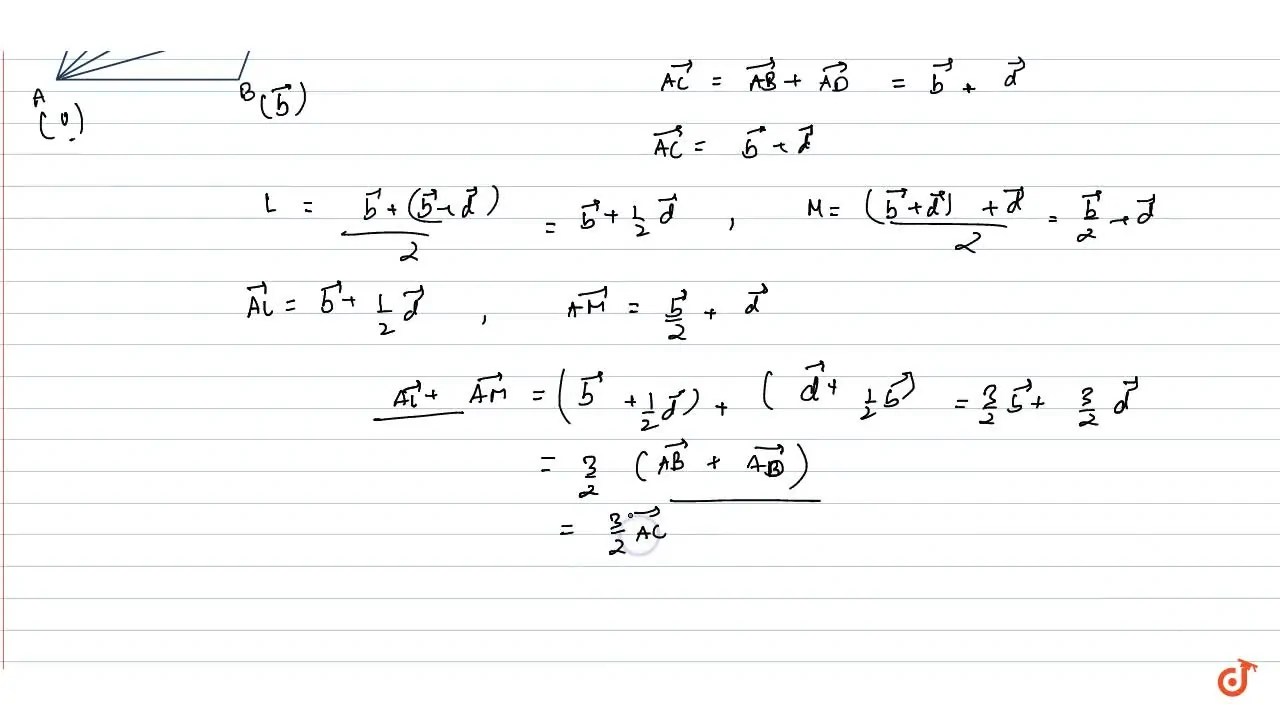 A⃗C⃗ = A⃗B⃗ + A⃗D⃗ = b⃗ + d⃗
A B (b⃗)
(0)
A⃗C⃗ = b⃗ + d⃗
L = (b⃗ + (b⃗ + d⃗))/2 = b⃗ + 1/2 d⃗ , M = ((b⃗ + d⃗) + d⃗)/2 = b⃗/2 + d⃗
A⃗L⃗ = b⃗ + 1/2 d⃗ , A⃗M⃗ = b⃗/2 + d⃗
A⃗L⃗ + A⃗M⃗ = (b⃗ + 1/2 d⃗) + (d⃗ + 1/2 b⃗) = 3/2 b⃗ + 3/2 d⃗
= 3/2 (A⃗B⃗ + A⃗D⃗)
= 3/2 A⃗C⃗